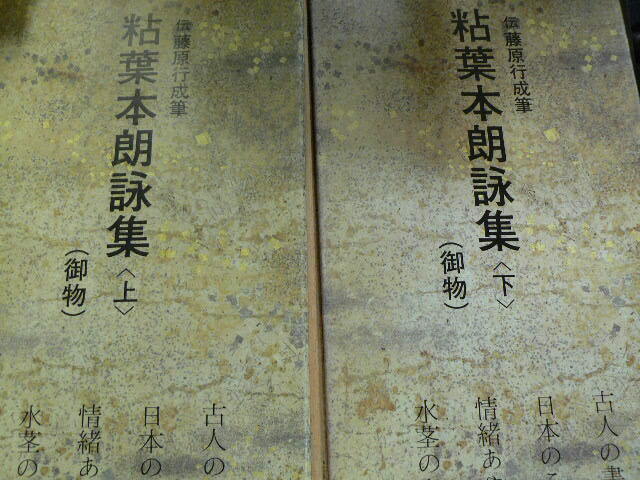 伝藤原行成筆
粘葉本朗詠集〈上〉
（御物）
古人の
日本の
情緒あ
水茎の
伝藤原行成筆
粘葉本朗詠集〈下〉
（御物）
古人の書
日本のこ
情緒あ
水茎の